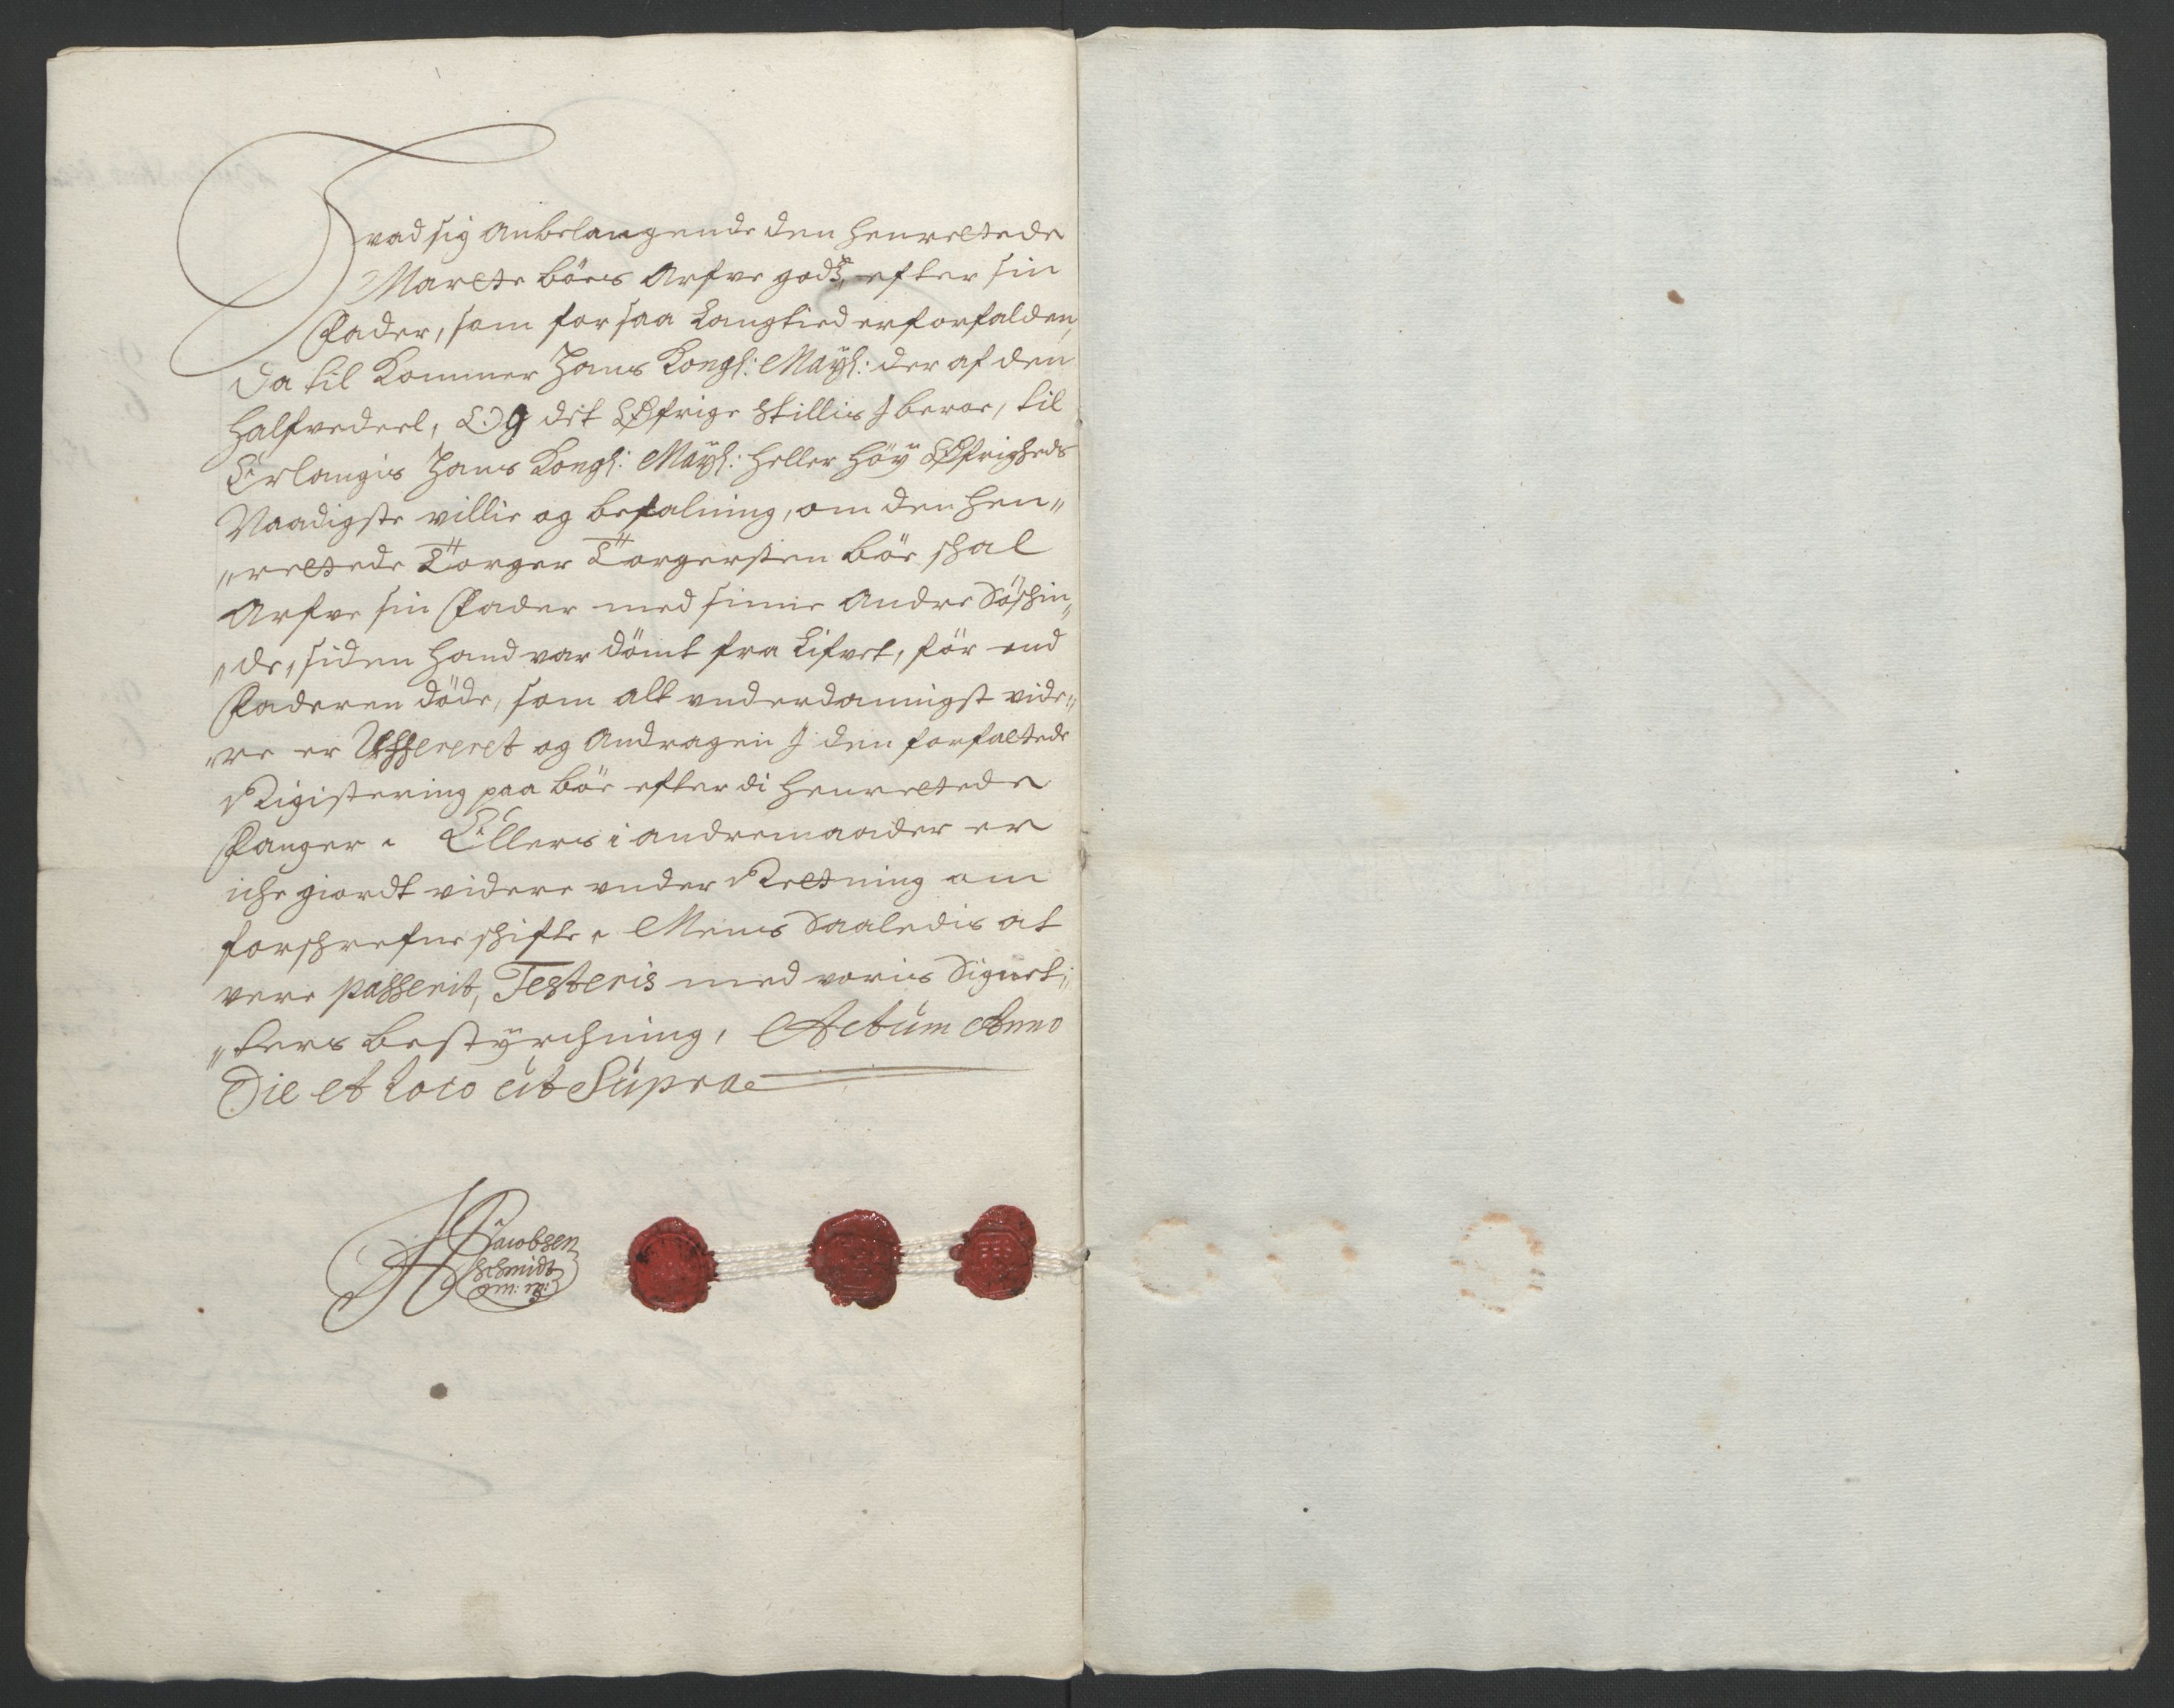 Hvad sig Anbelangende den henrettede
Marete Böes Arfve godtz, efter sin
Fader, som for saa Langtied er forfalden,
da til Kommer Hans Kongl: Mayh: der af den
halfvedeel, Og det Øfrige Stillis J beroe, til
Erlangis Hans Kongl: Mayh: heller höy Øfrigheds
Naadigste villie og befalning, om den hen„
„rettede Torger Torgersten Böe shal
Arfve sin Fader med sinne Andre Söshin„
„de, siden hand var dömt fra Lifvet, för end
Faderen döde, som alt underdannigst vide„
„re er Ufferenet og Andragen J den forfattede
Rigistering paa Böe efter di henrettede
Fanger. Ellers i andremaader er
iche giordt videre under Retning om
forschrefne schifte. Mens Saaledis at
vere passerit, Testeris med voris Signet„
„ters bestyrchning, Actum Anno
Die et Loco ut Supra
H Jacobsen
Schmidt